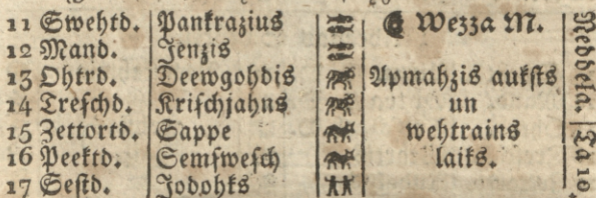 11 Swehtd. Pankrazius Wezza M.
12 Mand. Jenzis
13 Ohtrd. Deewgohdis Apmahzis aukſts
14 Treſchd. Kriſchjahns un
15 Zettortd. Sappe wehtrains
16 Peektd. Semſweſch laiks.
17 Seſtd. Jodohks
Neddela. Ta 10